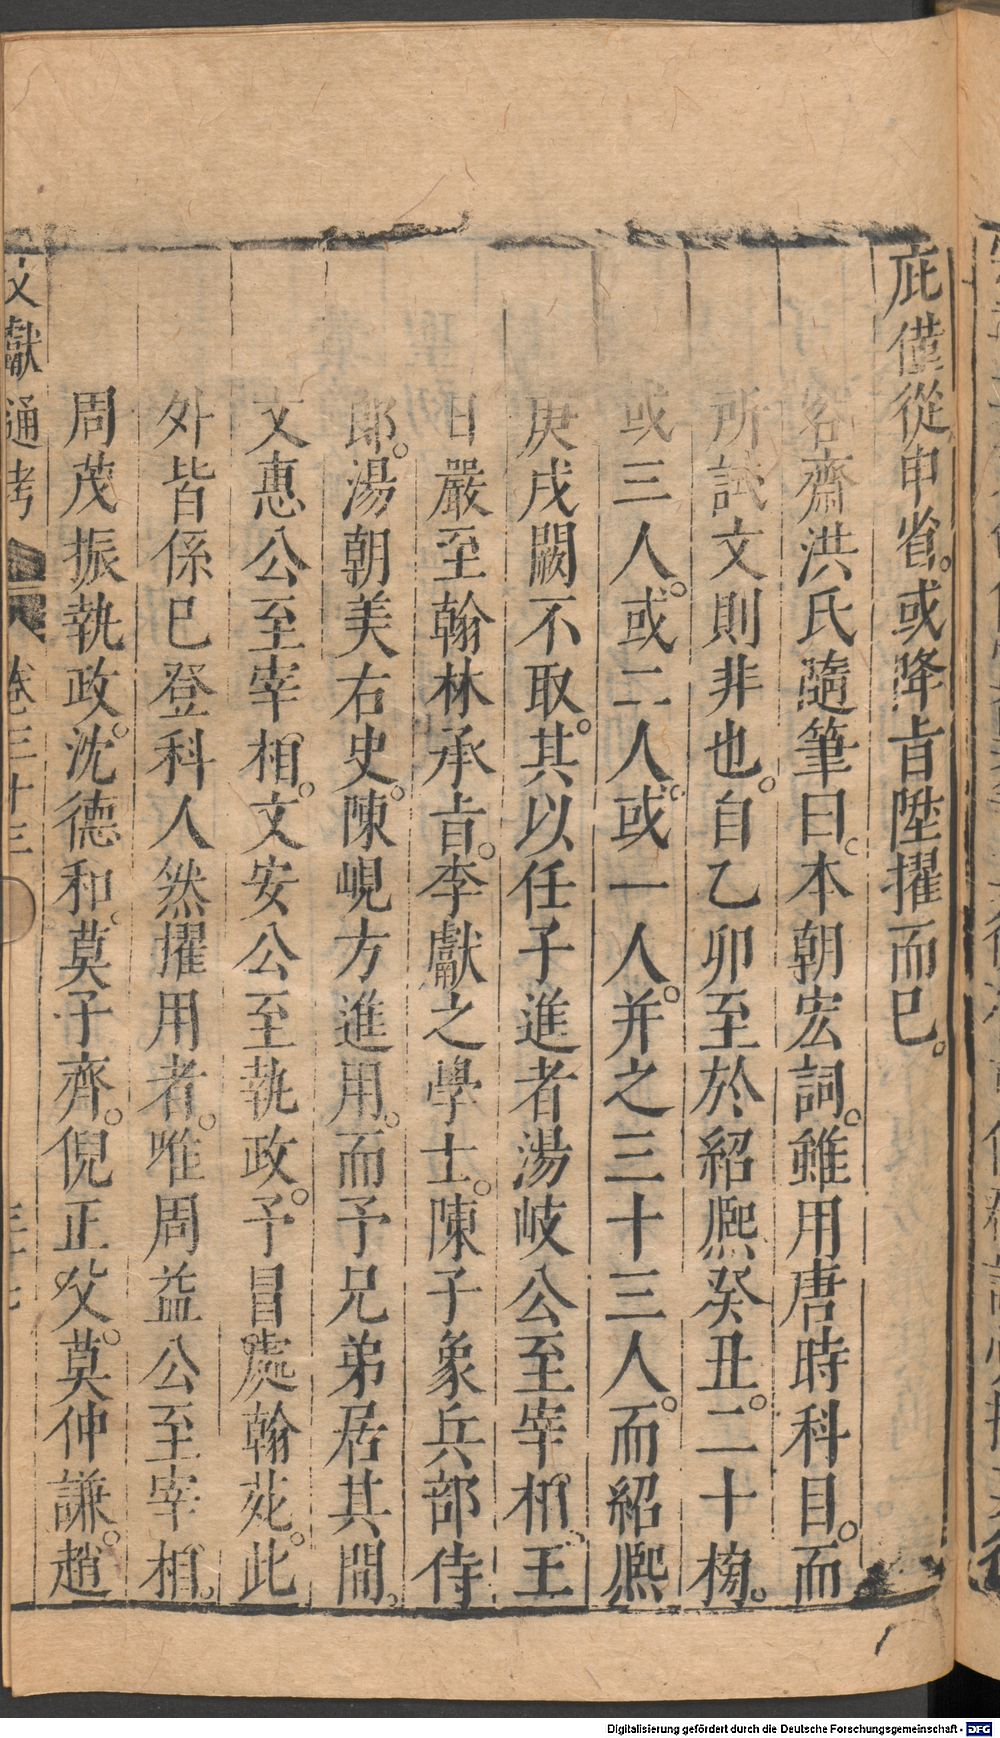 庇僅從申省。或降旨陞擢而已。
容齋洪氏隨筆曰。本朝宏詞。雖用唐時科目。而
所試文則非也。自乙卯至於紹熈癸丑。二十榜。
或三人。或二人。或一人。并之三十三人。而紹熈
庚戌闕不取。其以任子進者湯岐公至宰相。王
日嚴至翰林承旨。李獻之學士。陳子象兵部侍
郎。湯朝美右史。陳峴方進用。而予兄弟居其間。
文惠公至宰相。文安公至執政。予冒處翰苑。此
外皆係已登科人然擢用者。唯周益公至宰相。
周茂振執政。沈德和。莫子齊。倪正父。莫仲謙。趙
文獻通考 卷三十三
Digitalisierung gefördert durch die Deutsche Forschungsgemeinschaft - DFG